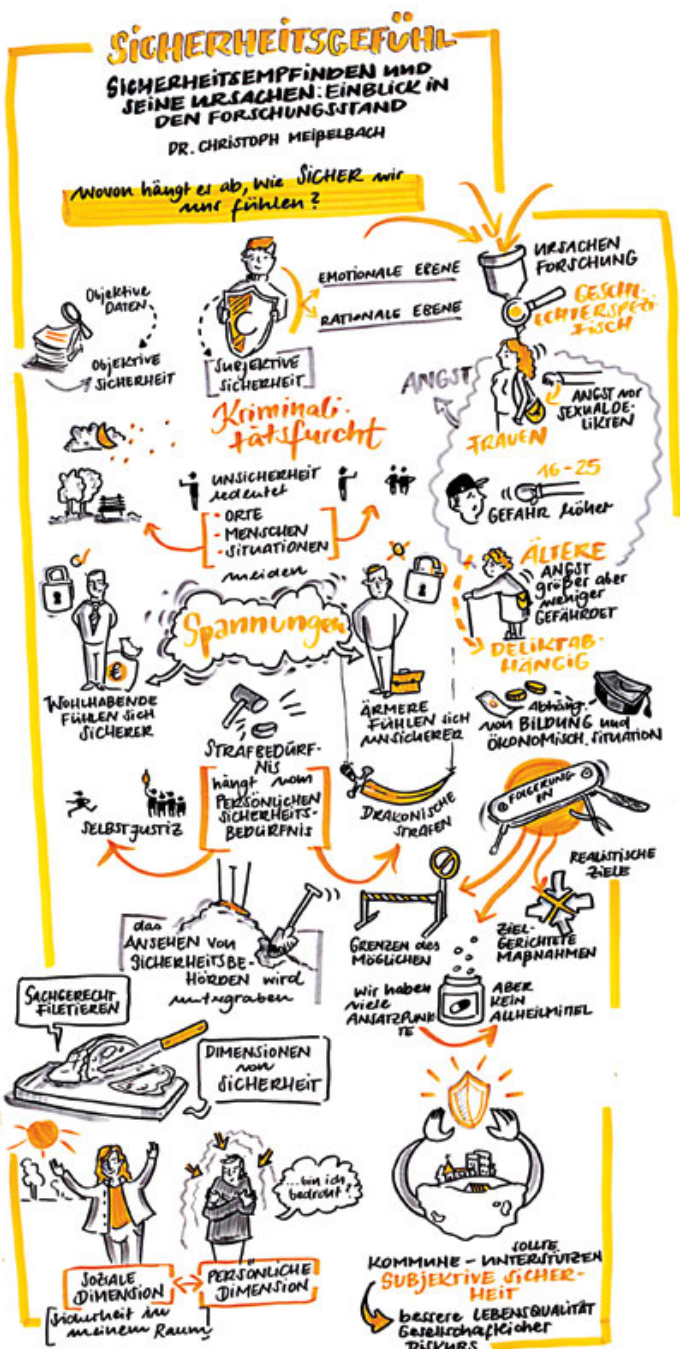 SICHERHEITSGEFÜHL
SICHERHEITSEMPFINDEN UND
SEINE URSACHEN: EINBLICK IN
DEN FORSCHUNGSSTAND
DR. CHRISTOPH MEIßELBACH
Wovon hängt es ab, wie SICHER wir
uns fühlen?
Objektive
DATEN
Objektive
SICHERHEIT
SUBJEKTIVE
SICHERHEIT
EMOTIONALE EBENE
RATIONALE EBENE
URSACHEN
FORSCHUNG
GESCHL-
ECHTERSPEZI-
FISCH
ANGST
ANGST vor
SEXUALDE-
LIKTEN
FRAUEN
16-25
GEFAHR höher
Kriminali-
tätsfurcht
UNSICHERHEIT
bedeutet
• ORTE
• MENSCHEN
• SITUATIONEN
meiden
ÄLTERE
ANGST
größer aber
weniger
GEFÄHRDET
DELIKTAB-
HÄNGIG
Spannungen
€
WOHLHABENDE
FÜHLEN SICH
SICHERER
ÄRMERE
FÜHLEN SICH
UNSICHERER
Abhäng.
von BILDUNG und
ÖKONOMISCH. SITUATION
STRAFBEDÜRF-
NIS
hängt vom
PERSÖNLICHEN
SICHERHEITS-
BEDÜRFNIS
SELBSTJUSTIZ
DRAKONISCHE
STRAFEN
FOLGERUNG-
EN
REALISTISCHE
ZIELE
ZIEL-
GERICHTETE
MAßNAHMEN
GRENZEN des
MÖGLICHEN
wir haben
viele
ANSATZPUNK-
TE
ABER
KEIN
ALLHEILMITTEL
das
ANSEHEN von
SICHERHEITSBE-
HÖRDEN wird
untergraben
SACHGERECHT
FILETIEREN
DIMENSIONEN
von
SICHERHEIT
...bin ich
bedroht?
SOZIALE
DIMENSION
PERSÖNLICHE
DIMENSION
Sicherheit in
meinem Raum
SOLLTE
KOMMUNE - UNTERSTÜTZEN
SUBJEKTIVE SICHER-
HEIT
bessere LEBENSQUALITÄT
Gesellschaftlicher
DISKURS